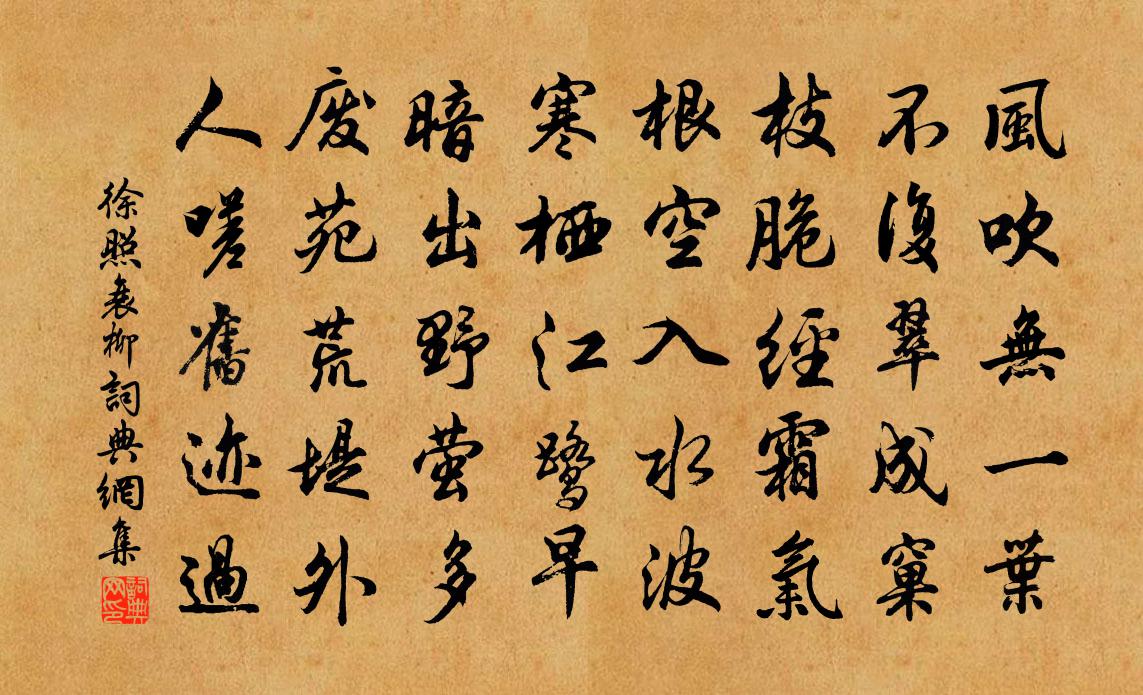 風吹無一葉
不復翠成窠
枝脆經霜氣
根空入水波
寒栖江鷺早
暗出野萤多
废苑荒堤外
人嗟舊迹過
徐照衰柳詞典網集
詞典网印